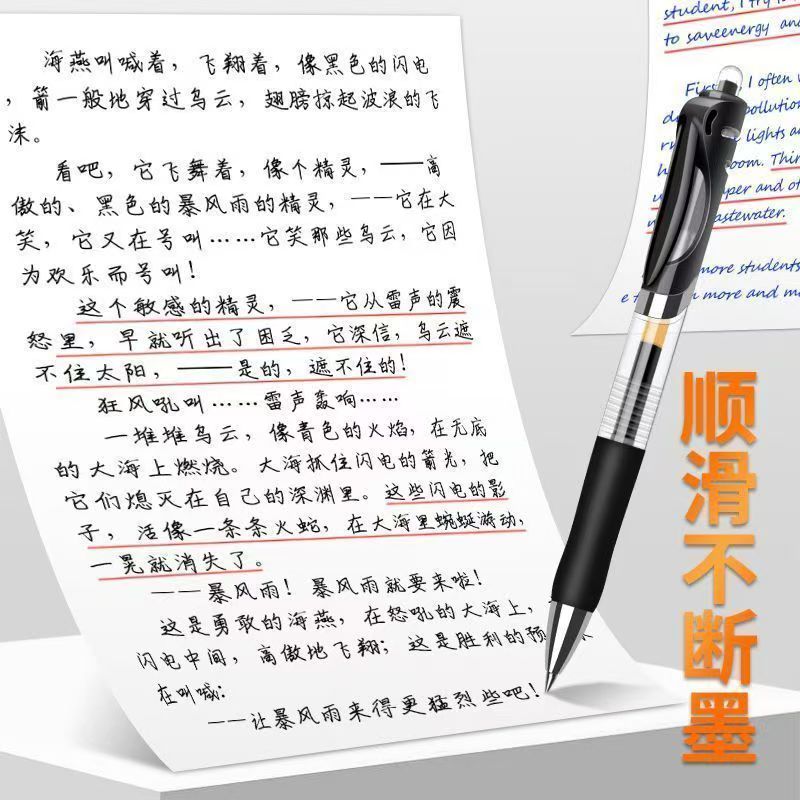 海燕叫喊着，飞翔着，像黑色的闪电
，箭一般地穿过乌云，翅膀掠起波浪的飞
沫。
看吧，它飞舞着，像个精灵，——高
傲的、黑色的暴风雨的精灵，——它在大
笑，它又在号叫……它笑那些乌云，它因
为欢乐而号叫！
这个敏感的精灵，——它从雷声的震
怒里，早就听出了困乏，它深信，乌云遮
不住太阳，——是的，遮不住的！
狂风吼叫……雷声轰响……
一堆堆乌云，像青色的火焰，在无底
的大海上燃烧。大海抓住闪电的箭光，把
它们熄灭在自己的深渊里。这些闪电的影
子，活像一条条火蛇，在大海里蜿蜒游动，
一晃就消失了。
——暴风雨！暴风雨就要来啦！
这是勇敢的海燕，在怒吼的大海上，
闪电中间，高傲地飞翔；这是胜利的预
在叫喊：
——让暴风雨来得更猛烈些吧！
student, I try to
to saveenergy and
I often
pollution
lights and
room. Thir
per and ot
astewater.
more students
more and m
顺滑不断墨